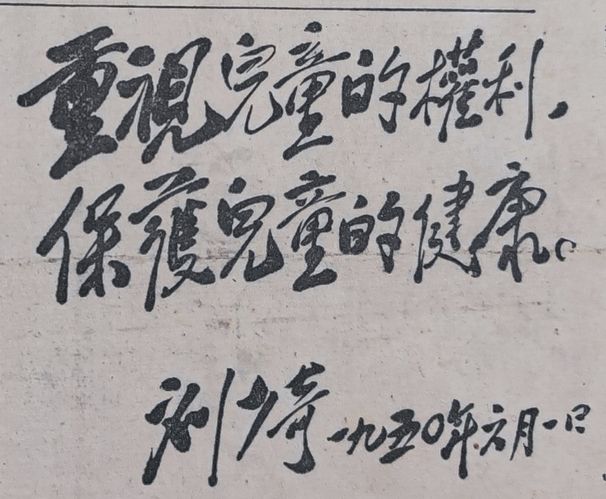 重視兒童的權利，
保護兒童的健康。
刘少奇 一九五〇年六月一日